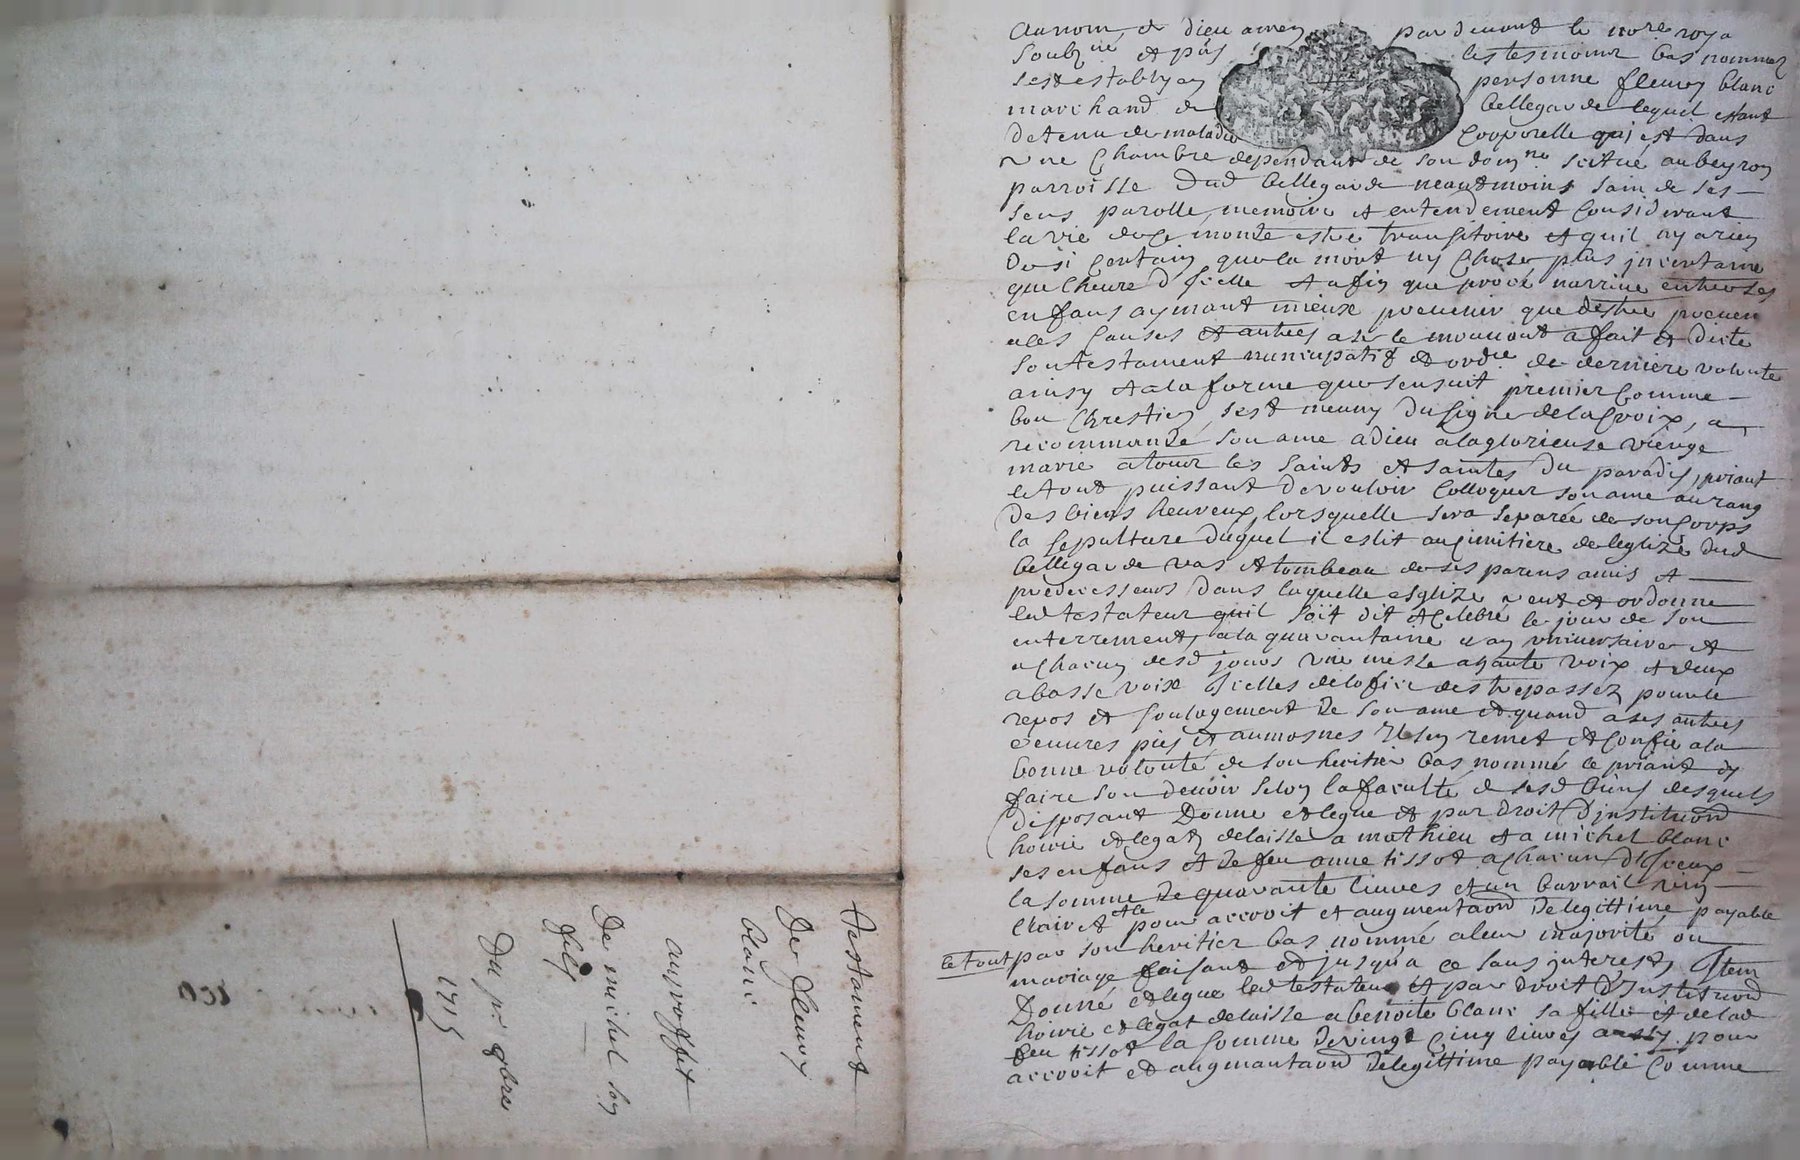 Au nom de dieu amen par devant le nore roya
soubzne et pns les tesmoins bas nommez
sest estably en personne fleury blanc
marchand de bellegarde lequel estant
detenu de maladie corporelle qui est dans
une chambre dependant de son domne scitué au beyron
parroisse dud bellegarde neantmoins sain de ses
sens parolle, memoire et entendement considerant
la vie de ce monde estre transitoire et quil ny a rien
de si certain que la mort ny chose plus incertaine
que lheure dicelle et afin que proces narrive entre ses
enfans aymant mieux prevenir que destre preven
a ces causes et autres a ce le mouvant a fait et dicte
son testament nuncupatif et ordre de derniere volonte
ainsy et a la forme que sensuit premier comme
bon chrestien sest meuny du signe de la croix, a
recommandé son ame a dieu a la glorieuse vierge
marie a tour les saints et saintes du paradis, priant
le tout puissant de vouloir colloquer son ame au rang
des biens heureux lorsquelle sera separée de son corps
la sepulture duquel il eslit au cimitiere de leglize dud
bellegarde vas et tombeau de ses parens amis et
predecesseurs dans laquelle esglize veut et ordonne
led testateur quil soit dit et celebré le jour de son
enterrement, a la quarantaine et an universaire et
a chacun desd jours une messe a haute voix et deux
a basse voix icelles de lofice des trepassez pour le
repos et soulagement de son ame et quand a ses autres
oeuvres pies et aumosnes il sen remet et confie a la
bonne volonté de son heritier bas nommé le priant dy
faire son devoir selon la faculté de sesd biens desquels
disposant donne et legue et par droit dinstituaon
hoirie et legat delaisse a mathieu et a michel blanc
ses enfans et de feu anne tissot a chacun diceux
la somme de quarante livres et un barrail vin
clair et cte pour accroit et augmentaon de legittime payable
le tout par son heritier bas nommé a leur majorité ou
mariage faisant et jusqua ce sans interest, Item
donné et legue led testateur et par droit dinstituaon
hoirie et legat delaisse a benoite blanc sa fille et de lad
feu tissot la somme de vingt cinq livres aussy pour
accroit et augmantaon de legittime payable comme
testament
de fleury
blanc
au proffit
de michel son
fils
du pr 9bre
1715